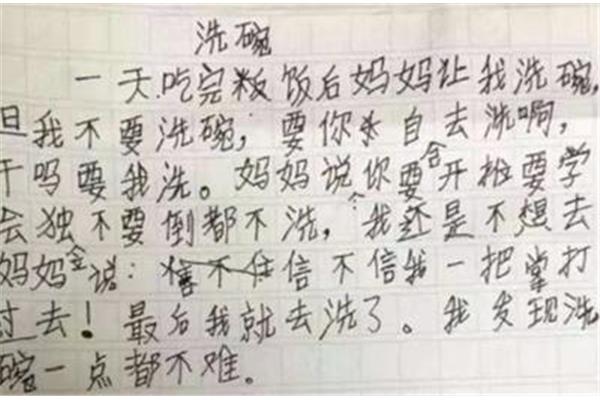 洗碗
一天.吃完粄饭后妈妈让我洗碗,
但我不要洗碗,要你自去洗啊,
干吗要我洗。妈妈说你要会开始要学
会独不要倒都不洗,我还是不想去
妈妈说:信不信我一把掌打
过去!最后我就去洗了。我发现洗
碗一点都不难。